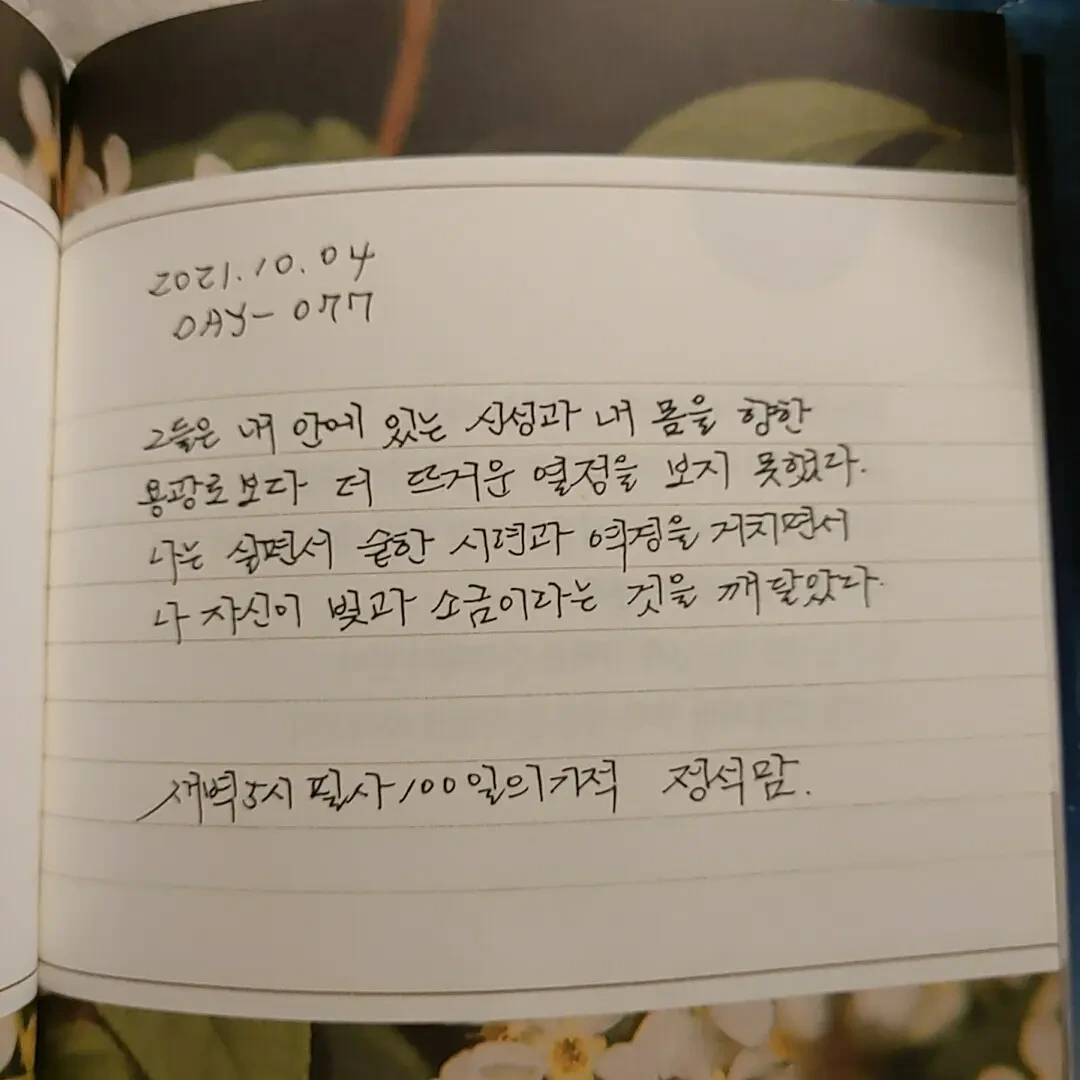 2021.10.04
DAY-077
그들은 내 안에 있는 신성과 내 몸을 향한
용광로보다 더 뜨거운 열정을 보지 못했다.
나는 살면서 숱한 시련과 역경을 거치면서
나 자신이 빛과 소금이라는 것을 깨달았다.
새벽5시 필사 100일의기적 정석맘.